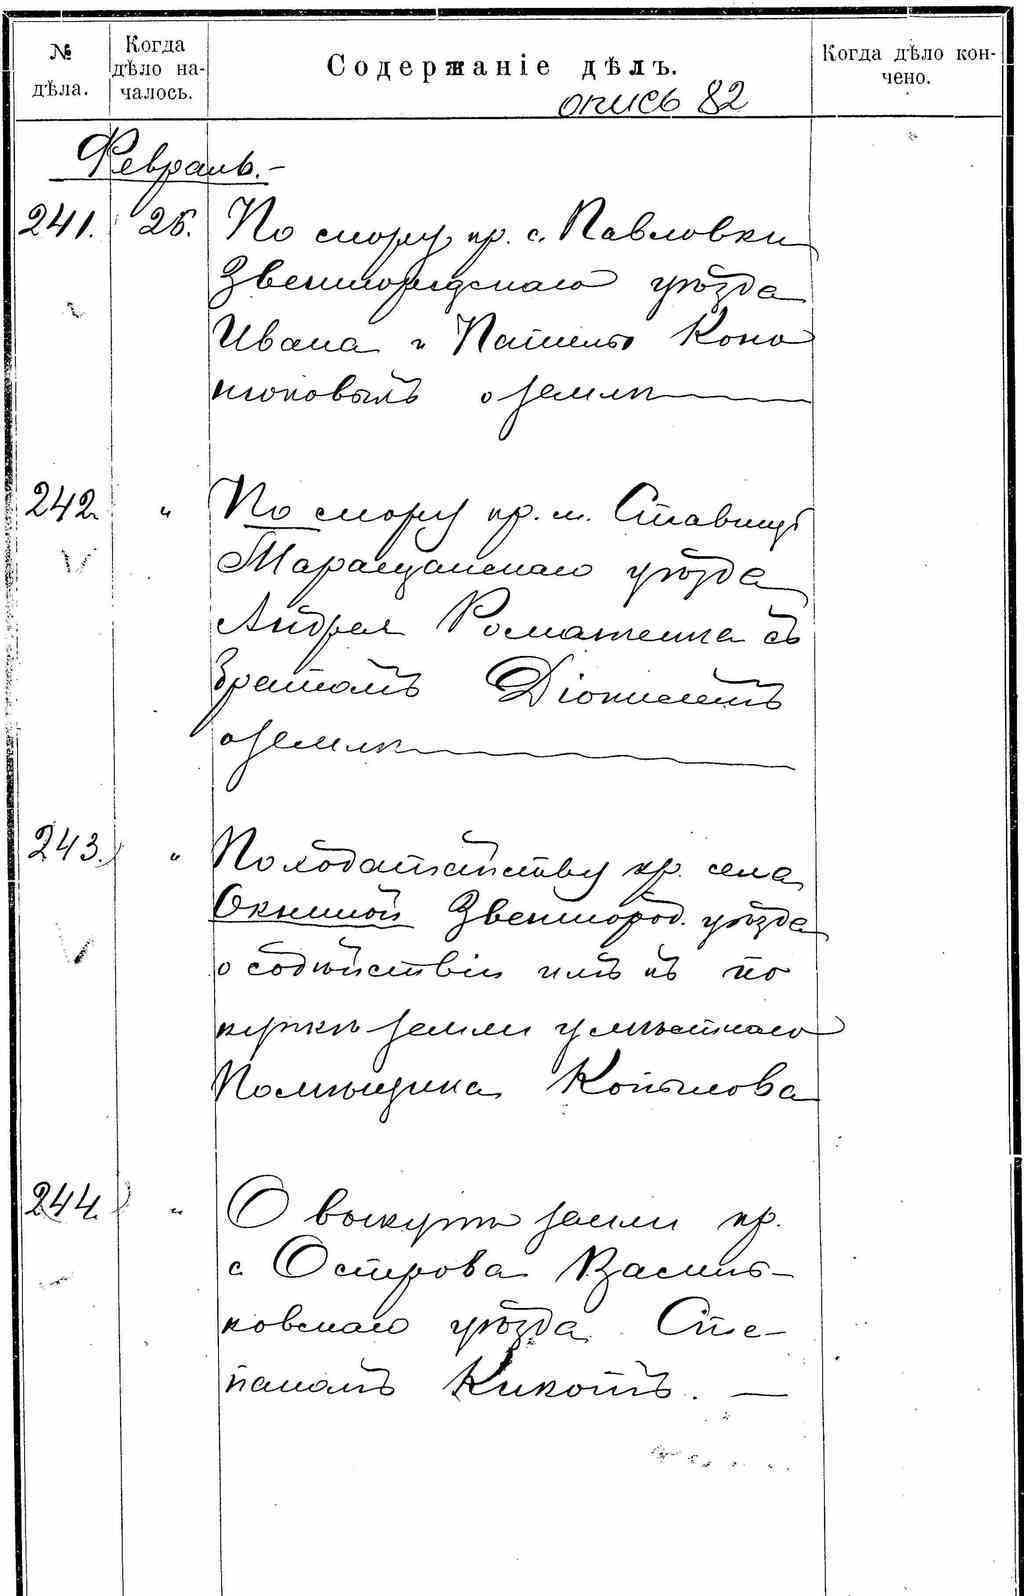 № дѣла. Когда дѣло началось. Содержаніе дѣлъ. Когда дѣло кончено.
опись 82
Февраль.-
241. 25. По спору кр. с. Павловки
Звенигородскаго уѣзда
Ивана и Коно
нюковыхъ о землѣ
242. " По спору кр. м. Ставищъ
Таращанскаго уѣзда
Андрея Романенка съ
братомъ Діонисіемъ
о землѣ
243. " По ходатайству кр. села
Окниной Звенигород. уѣзда
о содѣйствіи имъ къ по
купкѣ земли у мѣстнаго
Помѣщика Копылова
244. " О выкупѣ земли кр.
с Острова Василь-
ковскаго уѣзда Сте-
паномъ Кикотъ. —